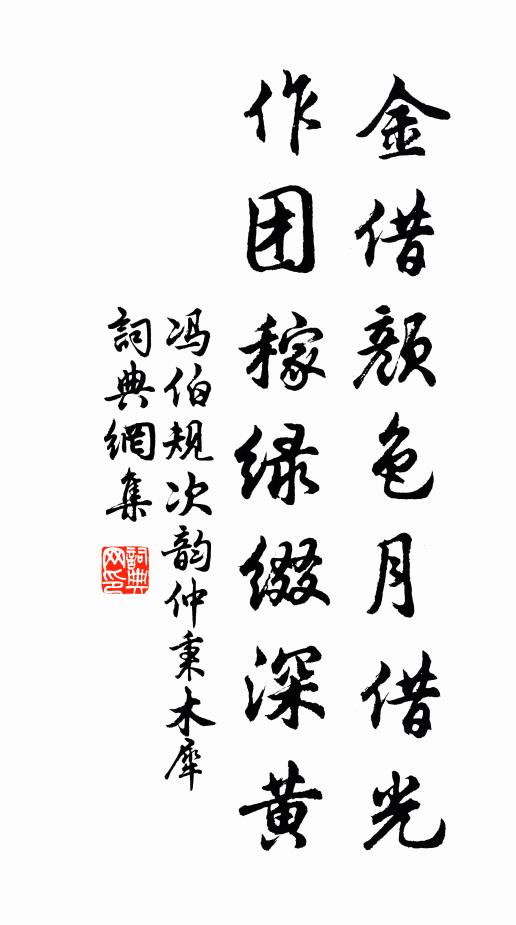 金借颜色月借光
作团稼绿缀深黄
冯伯规次韵仲秉木犀
詞典網集
詞典网印